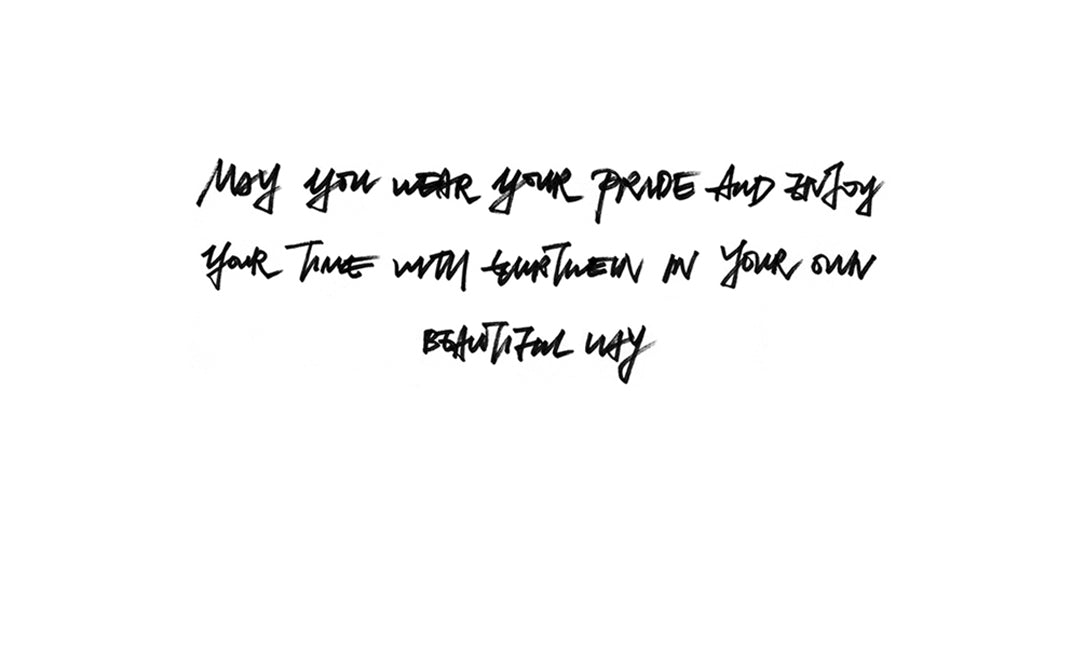 MAY YOU WEAR YOUR PRIDE AND ENJOY
YOUR TIME WITH IN YOUR OWN
BEAUTIFUL WAY